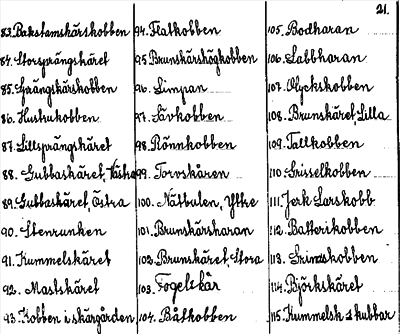 21.
83. Bakstamskärskobben
84. Storsprängskäret
85. Grängskärskobben
86. Hushukobben
87. Lillsprängskäret
88. Gubbaskäret, Västra
89. Gubbaskäret, Östra
90. Stenrunken
91. Kummelskäret
92. Mastskäret
93. Kobben i skärgården
94. Flatkobben
95. Brunskärshögkobben
96. Limpan
97. Sävkobben
98. Rönnkobben
99. Torvskären
100. Nätbulen, Yttre
101. Brunskärsharan
102. Brunskäret, Stora
103. Fogelskär
104. Båtkobben
105. Bodharan
106. Labbharan
107. Flyckskobben
108. Brunskäret, Lilla
109. Tallkobben
110. Grisselkobben
111. Jerk Larskobb
112. Batterikobben
113. Grindskobben
114. Björkskäret
115. Kummelsk. s kubbar